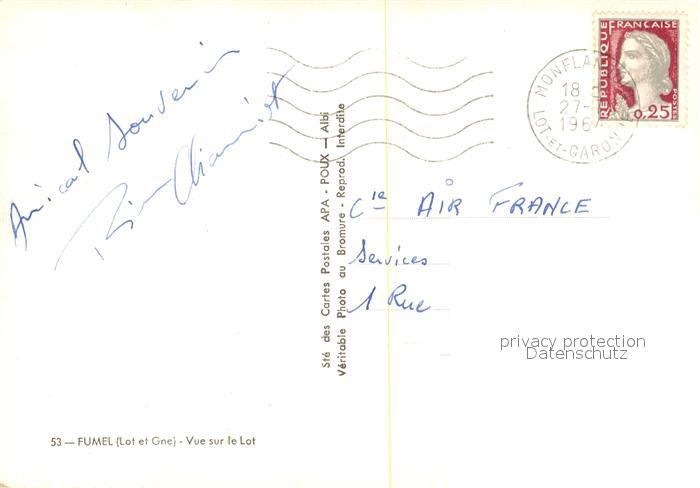 Amical Souvenir
RÉPUBLIQUE FRANÇAISE
POSTES
0,25
MONFLA
18
27-
196
LOT-ET-GARON
Cie AIR FRANCE
Services
1 Rue
privacy protection
Datenschutz
Sté des Cartes Postales APA - POUX — Albi
Véritable Photo au Bromure - Reprod. Interdite
53 — FUMEL (Lot et Gne) - Vue sur le Lot